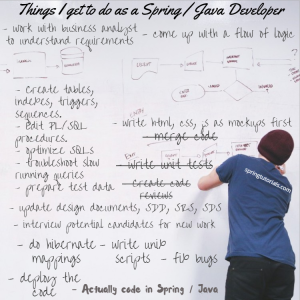 Things I get to do as a Spring / Java Developer
- work with business analyst
to understand requirements
- come up with a flow of logic
- create tables,
indexes, triggers,
sequences.
- Edit PL/SQL
procedures.
- optimize SQLS
- troubleshoot slow
running queries
- prepare test data
- write html, css, js as mockups first
- merge code
- write unit tests
- create code
reviews
springtutorials.com
- update design documents, SDD, SRS, SDS
- interview potential candidates for new work
- do hibernate
mappings
- write unix
scripts
- fix bugs
- deploy the
code
- Actually code in Spring / Java